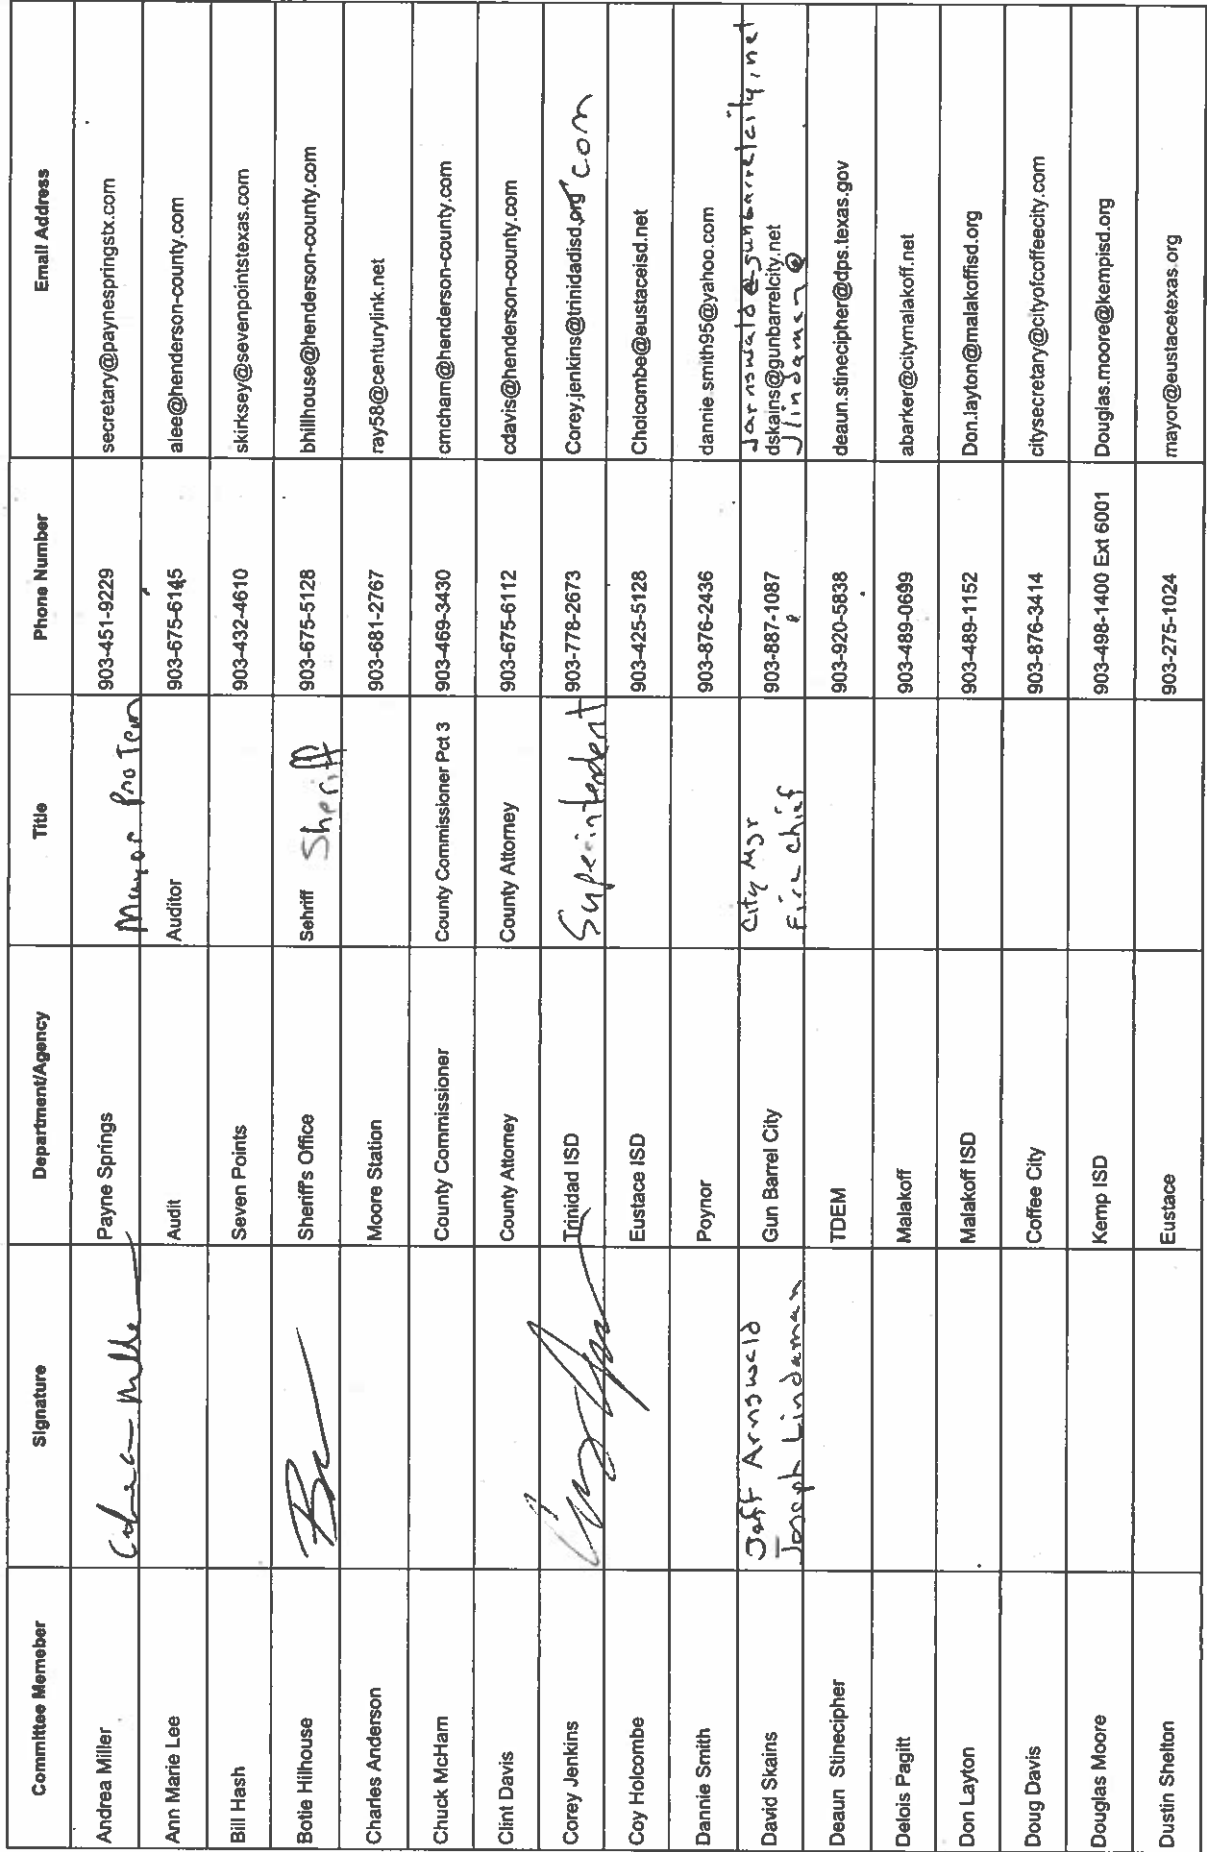 Committee Memeber Signature Department/Agency Title Phone Number Email Address
Andrea Miller Payne Springs Mayor Pro Tem 903-451-9229 secretary@paynespringstx.com
Ann Marie Lee Audit Auditor 903-675-6145 alee@henderson-county.com
Bill Hash Seven Points 903-432-4610 skirksey@sevenpointstexas.com
Botie Hilhouse Sheriff's Office Sehriff Sheriff 903-675-5128 bhillhouse@henderson-county.com
Charles Anderson Moore Station 903-681-2767 ray58@centurylink.net
Chuck McHam County Commissioner County Commissioner Pct 3 903-469-3430 cmcham@henderson-county.com
Clint Davis County Attorney County Attorney 903-675-6112 cdavis@henderson-county.com
Corey Jenkins Trinidad ISD Superintendent 903-778-2673 Corey.jenkins@trinidadisd.org com
Coy Holcombe Eustace ISD 903-425-5128 Cholcombe@eustaceisd.net
Dannie Smith Poynor 903-876-2436 dannie.smith95@yahoo.com
Jeff Arnswald City Mgr jarnswald@gunbarrelcity.net
David Skains Gun Barrel City 903-887-1087 dskains@gunbarrelcity.net
Joseph Lindaman Fire Chief Jlindaman@
Deaun Stinecipher TDEM 903-920-5838 deaun.stinecipher@dps.texas.gov
Delois Pagitt Malakoff 903-489-0699 abarker@citymalakoff.net
Don Layton Malakoff ISD 903-489-1152 Don.layton@malakoffisd.org
Doug Davis Coffee City 903-876-3414 citysecretary@cityofcoffeecity.com
Douglas Moore Kemp ISD 903-498-1400 Ext 6001 Douglas.moore@kempisd.org
Dustin Shelton Eustace 903-275-1024 mayor@eustacetexas.org